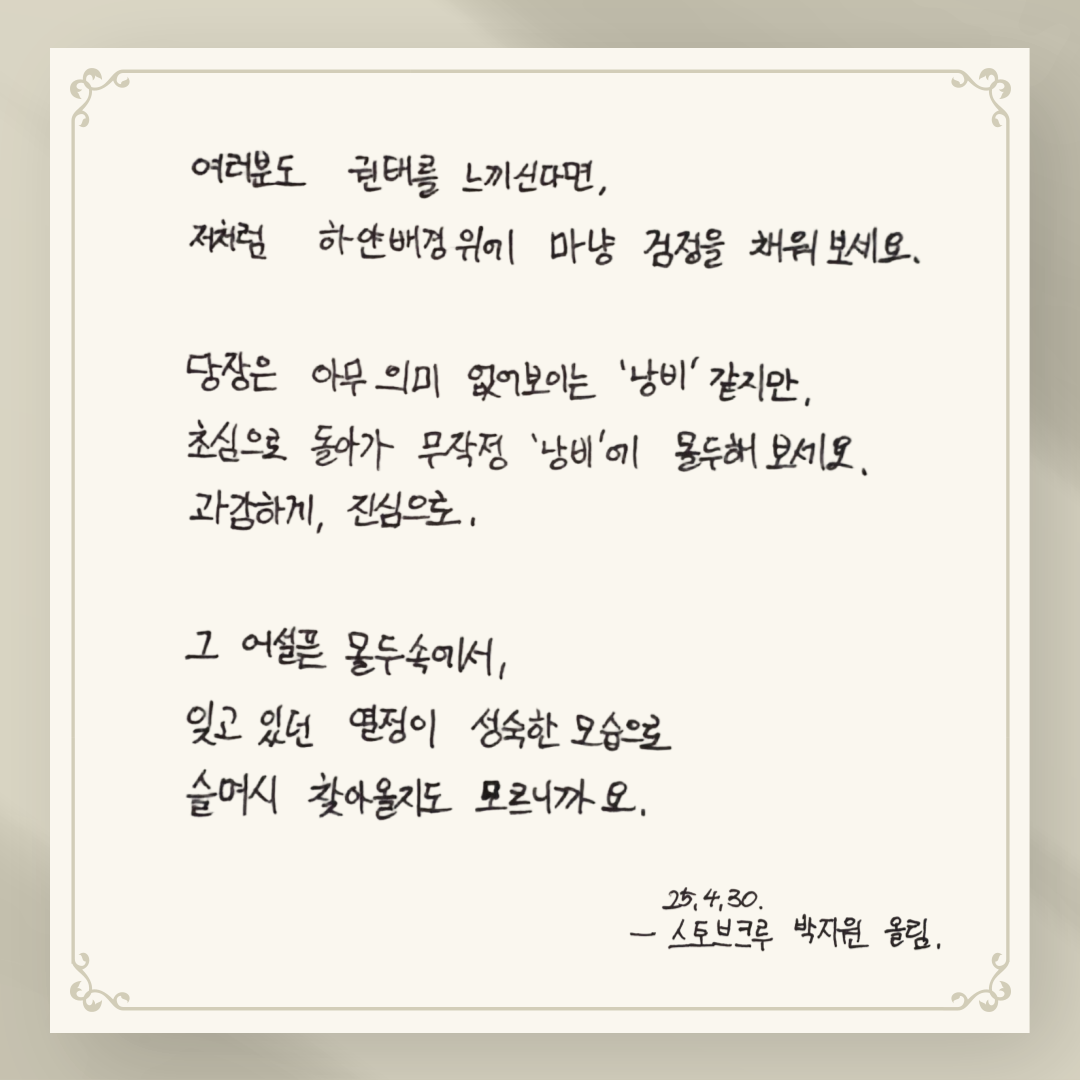 여러분도 권태를 느끼신다면,
저처럼 하얀 배경 위에 마냥 검정을 채워 보세요.
당장은 아무 의미 없어보이는 '낭비' 같지만,
초심으로 돌아가 무작정 '낭비'에 몰두해 보세요.
과감하게, 진심으로.
그 어설픈 몰두 속에서,
잊고 있던 열정이 성숙한 모습으로
슬며시 찾아올지도 모르니까요.
25.4.30.
— 스토브크루 박지원 올림.